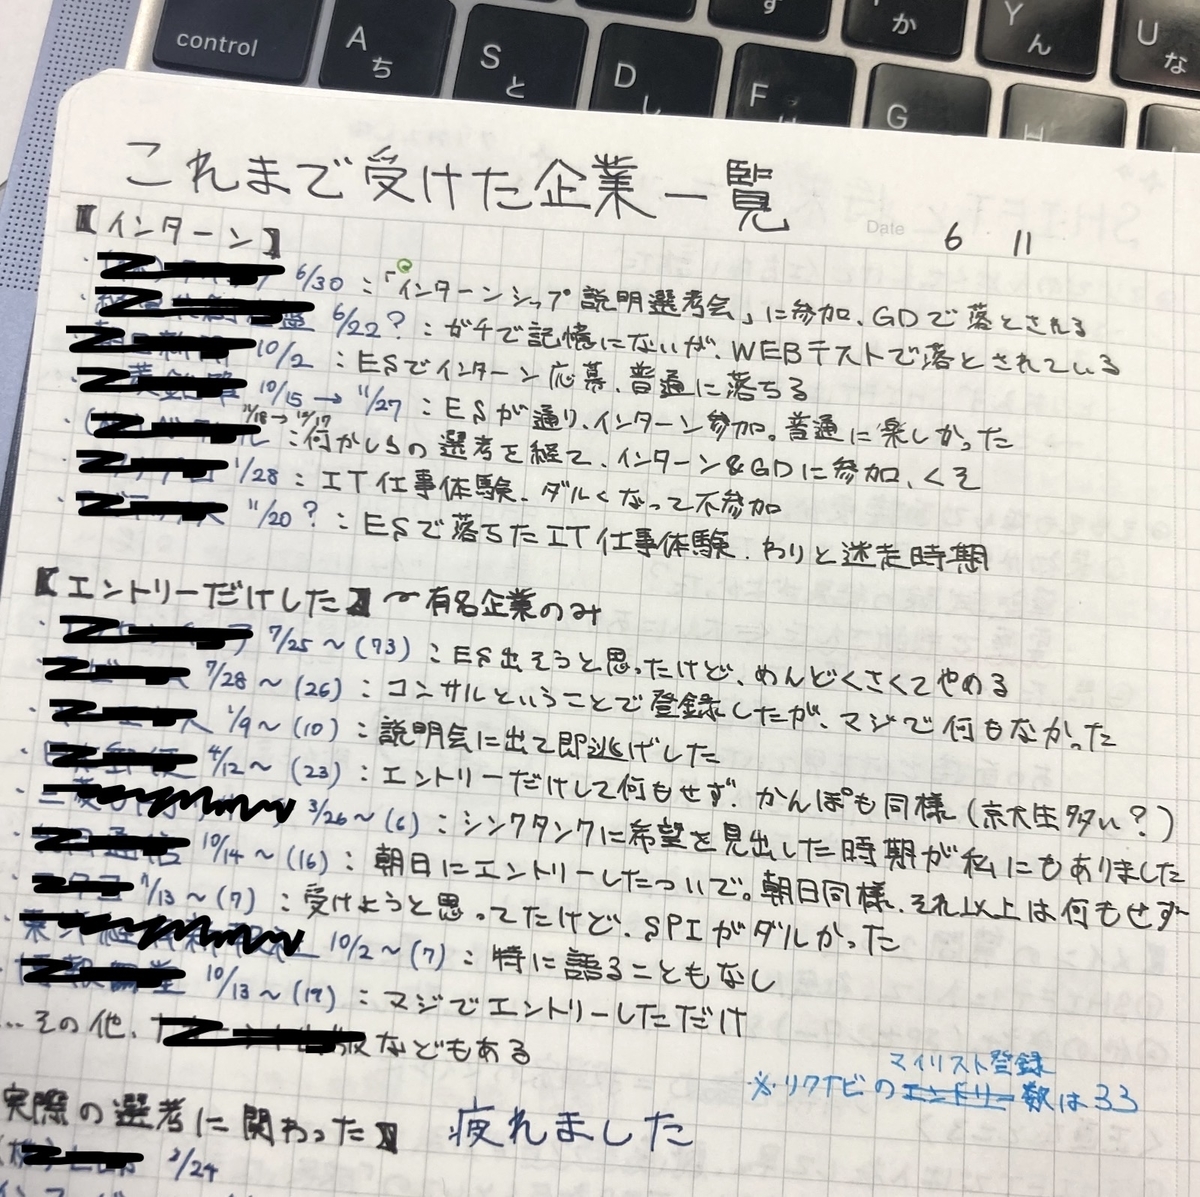 control
A ち
S と
D し
F
か
G
Y ん
H
U な
これまで受けた企業一覧
Date 6 11
【インターン】
6/30:「インターンシップ説明選考会」に参加、GDで落とされる
6/22?:ガチで記憶にないが、WEBテストで落とされている
10/2:ESでインターン応募、普通に落ちる
10/15→11/27:ESが通り、インターン参加。普通に楽しかった
11/18→12/17
:何かしらの選考を経て、インターン&GDに参加、くそ
1/28:IT仕事体験、ダルくなって不参加
11/20?:ESで落ちたIT仕事体験、わりと迷走時期
【エントリーだけした】〜有名企業のみ
7/25〜(73):ES出そうと思ったけど、めんどくさくてやめる
7/28〜(26):コンサルということで登録したが、マジで何もなかった
1/9〜(10):説明会に出て即逃げした
4/12〜(23):エントリーだけして何もせず、かんぽも同様(京大生多い?)
3/26〜(6):シンクタンクに希望を見出した時期が私にもありました
10/14〜(16):朝日にエントリーしたついで。朝日同様、それ以上は何もせず
1/13〜(7):受けようと思ってたけど、SPIがダルかった
10/2〜(7):特に語ることもなし
10/13〜(19):マジでエントリーしただけ
…その他、などもある
マイリスト登録
※リクナビのエントリー数は33
実際の選考に関わった】 疲れました
2/24